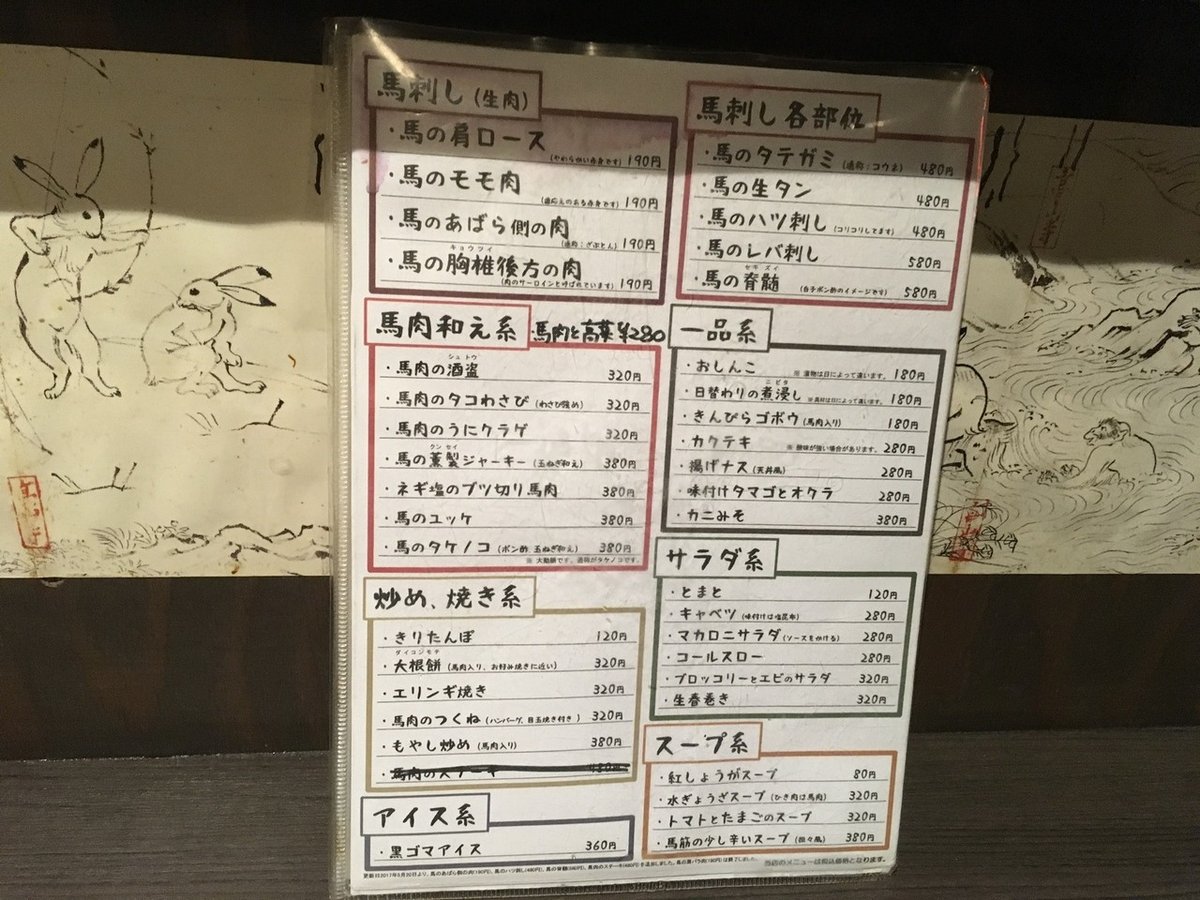 馬刺し (生肉)
・馬の肩ロース (やわらかい赤身です) 190円
・馬のモモ肉 (歯応えのある赤身です) 190円
・馬のあばら側の肉 (通称：ざぶとん) 190円
キョウツイ
・馬の胸椎後方の肉 (肉のサーロインと呼ばれています) 190円
馬肉和え系
馬肉と高菜¥280
シュトウ
・馬肉の酒盗 320円
・馬肉のタコわさび (わさび強め) 320円
・馬肉のうにクラゲ 320円
クンセイ
・馬の薫製ジャーキー (玉ねぎ和え) 380円
・ネギ塩のブツ切り馬肉 380円
・馬のユッケ 380円
・馬のタケノコ (ポン酢 玉ねぎ和え) 380円
※大動脈です。通称がタケノコです。
炒め、焼き系
・きりたんぽ 120円
ダイコンモチ
・大根餅 (馬肉入り、お好み焼きに近い) 320円
・エリンギ焼き 320円
・馬肉のつくね (ハンバーグ、目玉焼き付き) 320円
・もやし炒め (馬肉入り) 380円
・馬肉のステーキ 480円
アイス系
・黒ゴマアイス 360円
馬刺し各部位
・馬のタテガミ (通称：コウネ) 480円
・馬の生タン 480円
・馬のハツ刺し (コリコリしてます) 480円
・馬のレバ刺し 580円
セキズイ
・馬の脊髄 (白子ポン酢のイメージです) 580円
一品系
・おしんこ ※漬物は日によって違います。 180円
ニビタ
・日替わりの煮浸し ※具材は日によって違います。 180円
・きんぴらゴボウ (馬肉入り) 180円
・カクテキ ※酸味が強い場合があります。 280円
・揚げナス (天丼風) 280円
・味付けタマゴとオクラ 280円
・カニみそ 380円
サラダ系
・とまと 120円
・キャベツ (味付けは塩昆布) 280円
・マカロニサラダ (ソースをかける) 280円
・コールスロー 280円
・ブロッコリーとエビのサラダ 320円
・生春巻き 320円
スープ系
・紅しょうがスープ 80円
・水ぎょうざスープ (ひき肉は馬肉) 320円
・トマトとたまごのスープ 320円
・馬筋の少し辛いスープ (担々風) 380円
更新日2017年5月20日より、馬のあばら側の肉(190円)、馬のハツ刺し(480円)、馬の脊髄(580円)、馬肉のステーキ(480円)を追加しました。馬の黒バラ肉(190円)は終了しました。
当店のメニューは税込価格となります。